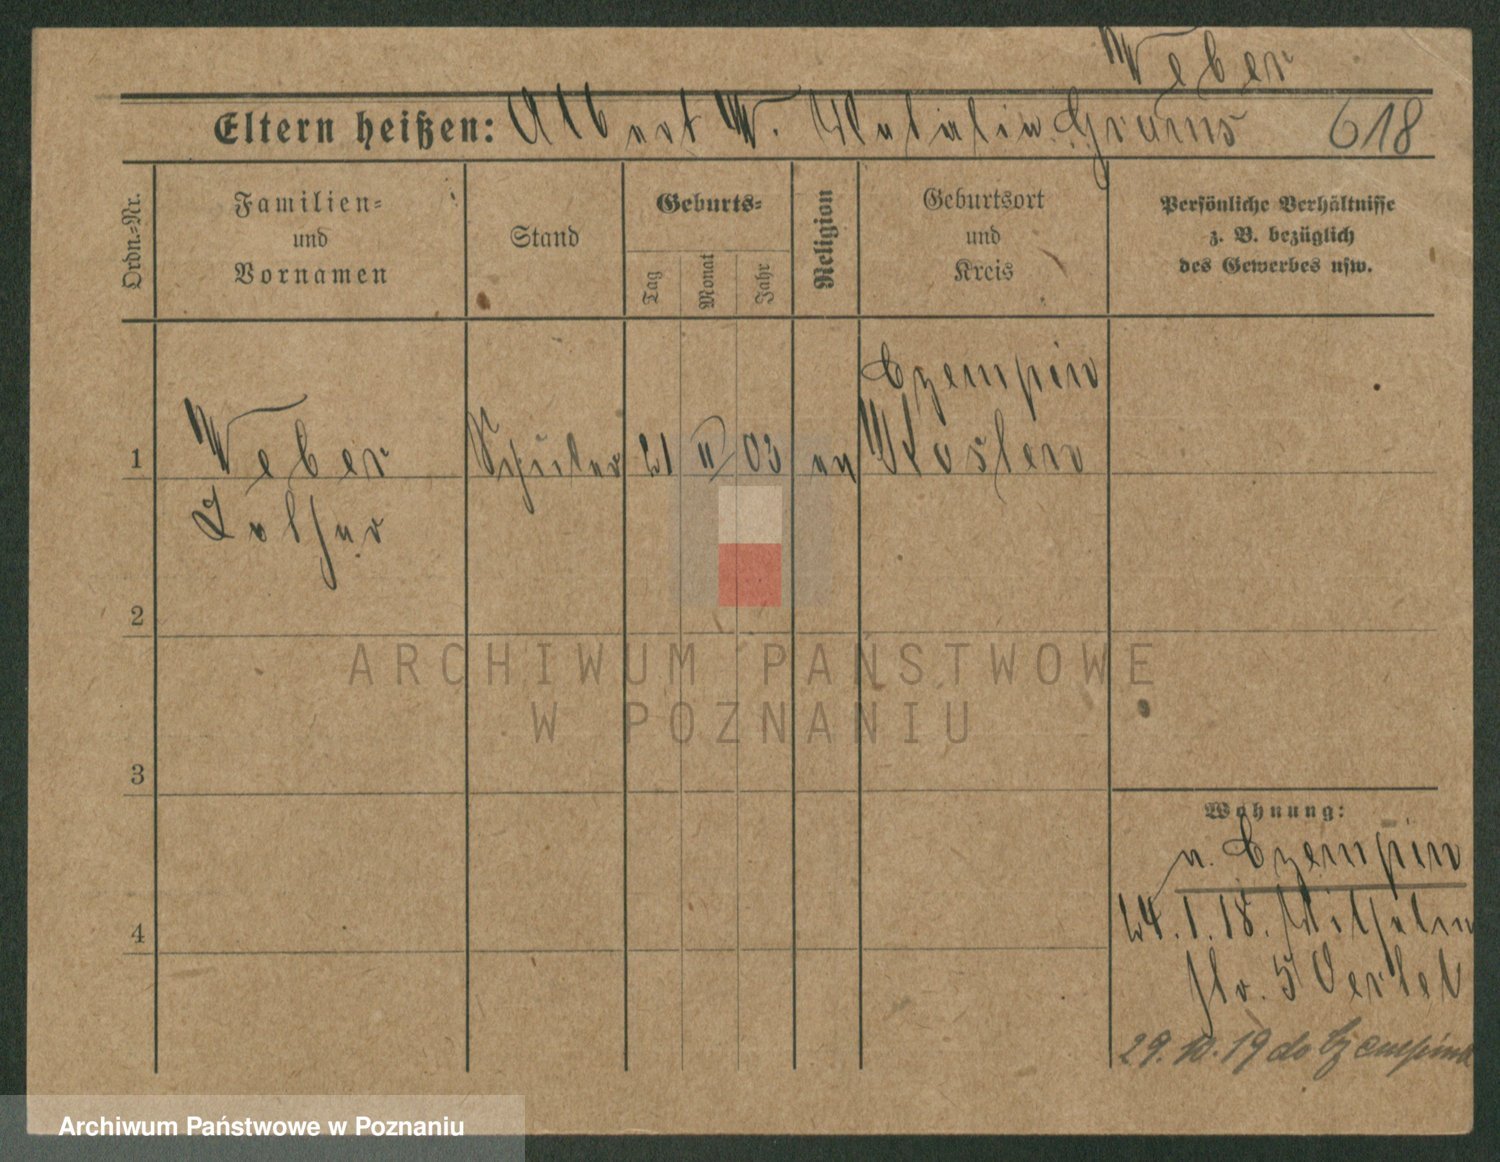 Weber
Eltern heißen: Albert W. Natalie Grams 618
Ordn.-Nr.
Familien-
und
Vornamen
Stand
Geburts-
Tag
Monat
Jahr
Religion
Geburtsort
und
Kreis
Persönliche Verhältnisse
z. B. bezüglich
des Gewerbes usw.
Czempin
1 Weber Schüler 21 II 03 ev Kosten
Lothar
2
ARCHIWUM PAŃSTWOWE
W POZNANIU
3
Wohnung:
n. Czempin
24.1.18. Wilhelm
str. 5
29.10.19 do Czempinia
4
Archiwum Państwowe w Poznaniu